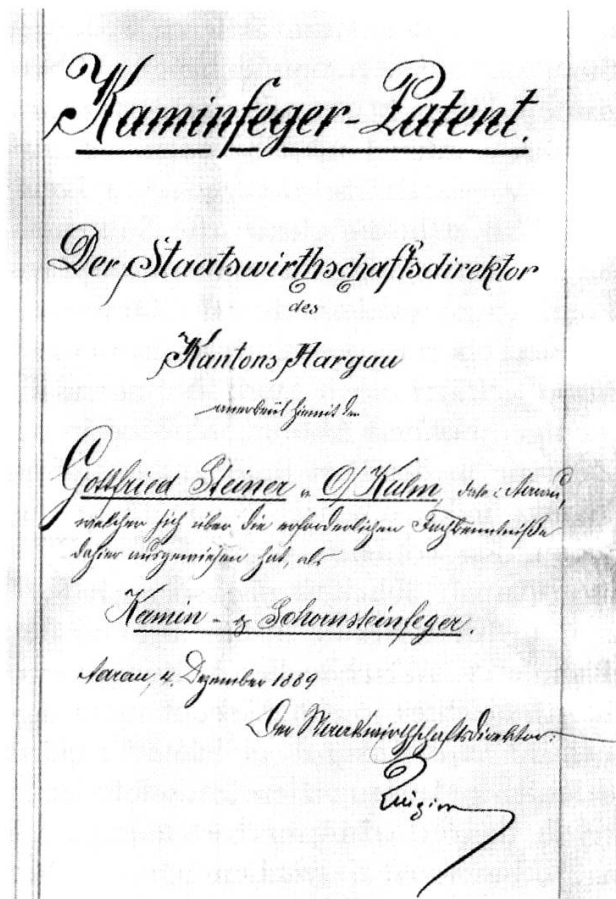 Kaminfeger-Patent.
Der Staatswirthschaftsdirektor
des
Kantons Aargau
anerkennt hiemit den
Gottfried Steiner v. O/Kulm, dato: Aarau,
welcher sich über die erforderlichen Fachkenntniße
dahier ausgewiesen hat, als
Kamin- & Schornsteinfeger.
Aarau, 4. Dezember 1889
Der Staatswirthschaftsdirektor: